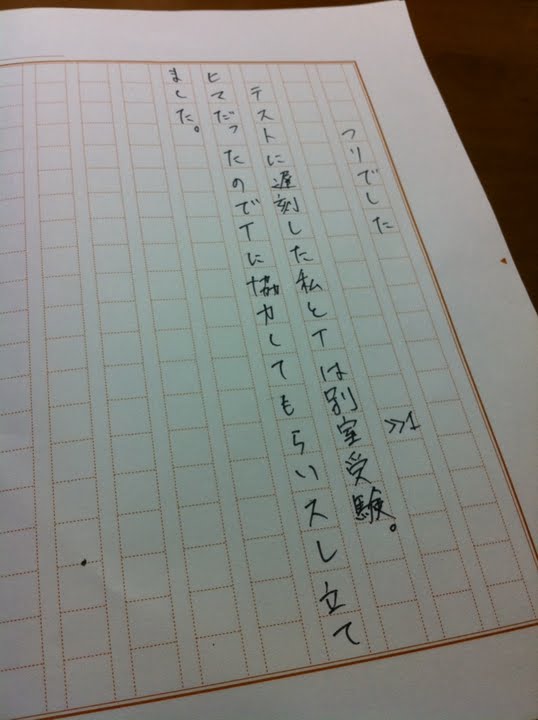 つりでした
≫1
テストに遅刻した私とTは別室受験。
ヒマだったのでTに協力してもらいスレ立て
ました。